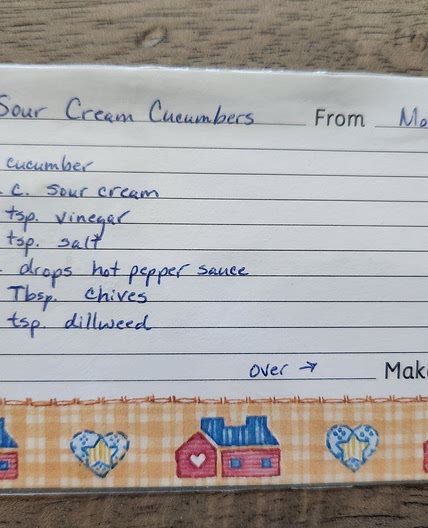 Sour Cream Cucumbers From Mo
cucumber
c. sour cream
tsp. vinegar
tsp. salt
drops hot pepper sauce
Tbsp. chives
tsp. dillweed
over → Make